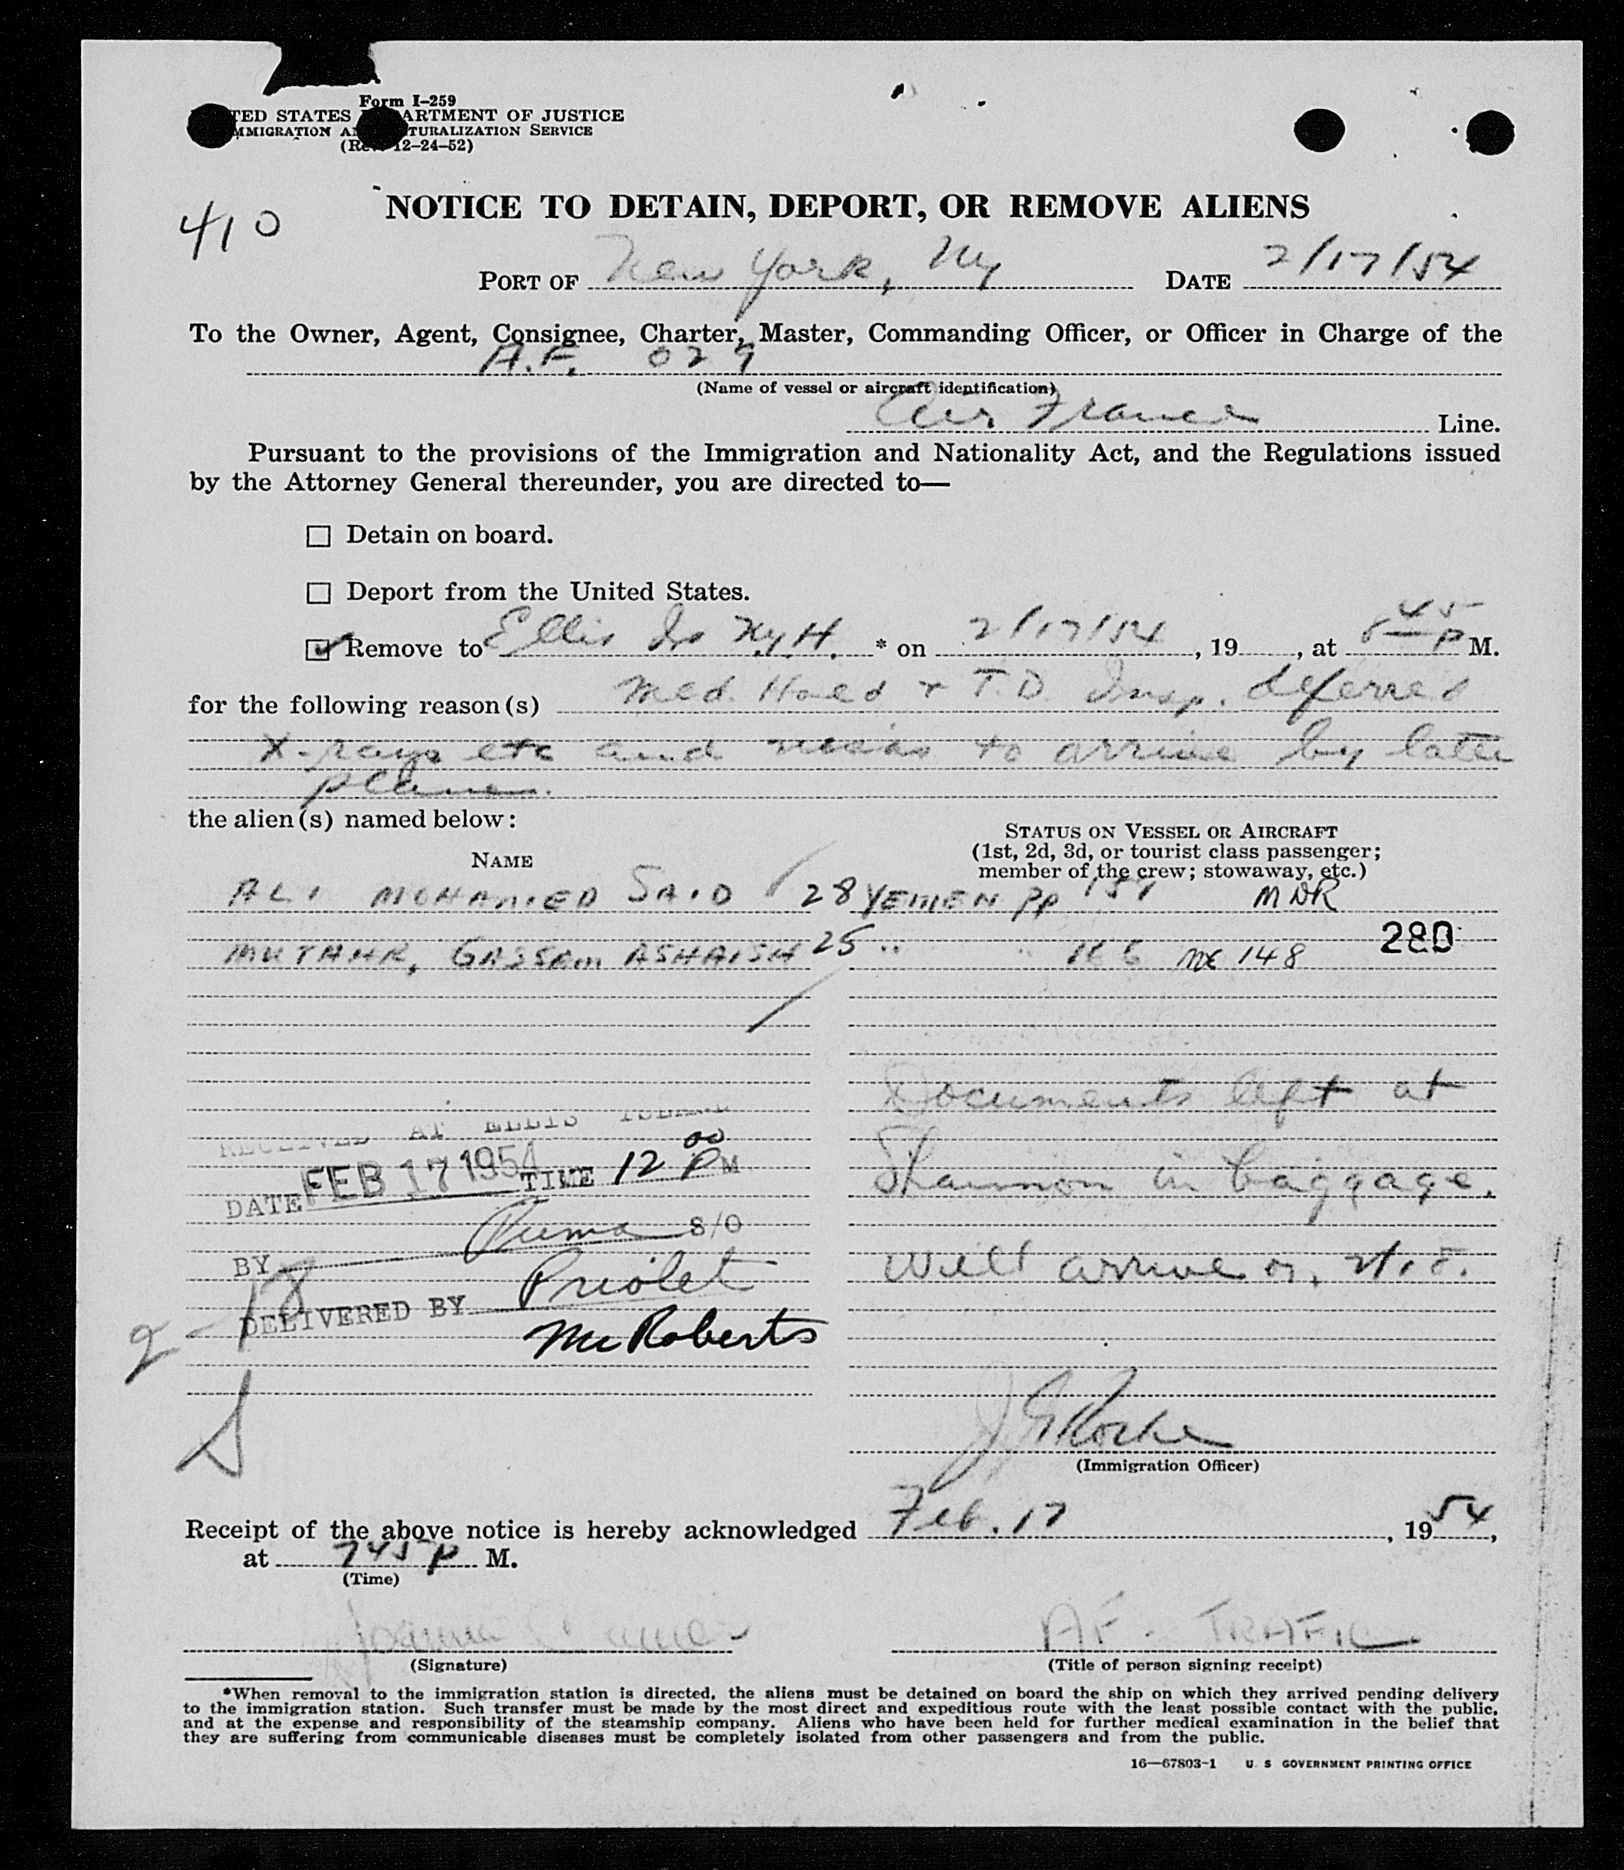 Form I-259
TED STATES ARTMENT OF JUSTICE
MMIGRATION A TURALIZATION SERVICE
(Re 12-24-52)
410
NOTICE TO DETAIN, DEPORT, OR REMOVE ALIENS
PORT OF New York, Ny DATE 2/17/54
To the Owner, Agent, Consignee, Charter, Master, Commanding Officer, or Officer in Charge of the
A.F. 029
(Name of vessel or aircraft identification)
Air France Line.
Pursuant to the provisions of the Immigration and Nationality Act, and the Regulations issued
by the Attorney General thereunder, you are directed to—
☐ Detain on board.
☐ Deport from the United States.
☑ Remove to Ellis Is N.Y.H. * on 2/17/54, 19, at 45 P M.
for the following reason(s) Med. Hold + T.D. Insp. deferred
X-rays etc and to arrive by later
plane.
the alien(s) named below:
STATUS ON VESSEL OR AIRCRAFT
(1st, 2d, 3d, or tourist class passenger;
member of the crew; stowaway, etc.)
NAME
ALI MOHAMED SAID 28 YEMEN PP 157 MNR
MUTAHR, GASSEM ASHAISH 25 " " 148 280
Documents left at
Shannon in baggage.
Will arrive on 2/18.
RECEIVED AT ELLIS ISLAND
DATE FEB 17 1954 TIME 12 00 P M
BY S/O
DELIVERED BY Priolet
McRoberts
2-18
(Immigration Officer)
Receipt of the above notice is hereby acknowledged Feb. 17, 1954,
at 745 P M.
(Time)
AF. TRAFFIC
(Signature) (Title of person signing receipt)
*When removal to the immigration station is directed, the aliens must be detained on board the ship on which they arrived pending delivery
to the immigration station. Such transfer must be made by the most direct and expeditious route with the least possible contact with the public,
and at the expense and responsibility of the steamship company. Aliens who have been held for further medical examination in the belief that
they are suffering from communicable diseases must be completely isolated from other passengers and from the public.
16—67803-1 U. S. GOVERNMENT PRINTING OFFICE